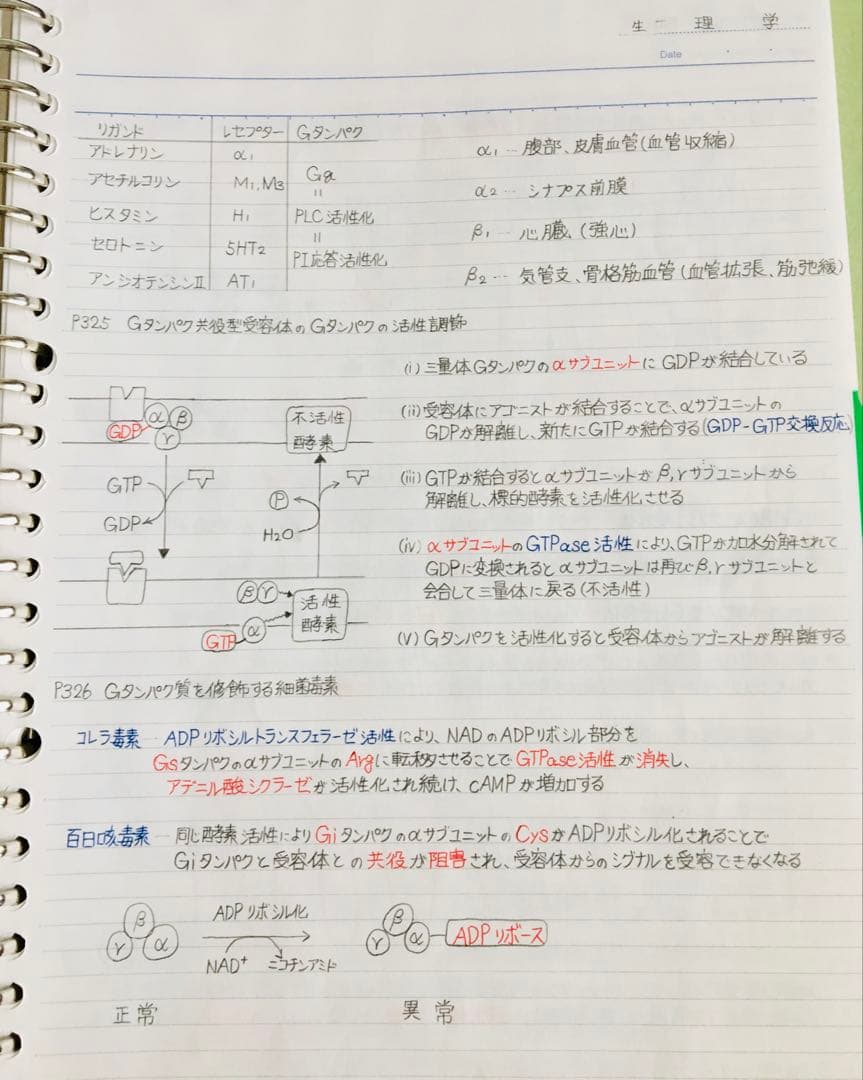 生理学
Date
リガンド レセプター Gタンパク
アドレナリン α1
アセチルコリン M1,M3 Gq
=
ヒスタミン H1 PLC活性化
=
セロトニン 5HT2 PI応答活性化
アンジオテンシンⅡ AT1
α1… 腹部、皮膚血管(血管収縮)
α2… シナプス前膜
β1… 心臓(強心)
β2… 気管支、骨格筋血管(血管拡張、筋弛緩)
P325 Gタンパク共役型受容体のGタンパクの活性調節
α β
GDP γ
不活性
酵素
GTP
GDP
P
H2O
β γ
活性
酵素
GTP α
(i) 三量体Gタンパクのαサブユニットに GDPが結合している
(ii) 受容体にアゴニストが結合することで、αサブユニットの
GDPが解離し、新たにGTPが結合する(GDP-GTP交換反応)
(iii) GTPが結合するとαサブユニットがβ,γサブユニットから
解離し、標的酵素を活性化させる
(iv) αサブユニットのGTPase活性により、GTPが加水分解されて
GDPに変換されるとαサブユニットは再びβ,γサブユニットと
会合して三量体に戻る(不活性)
(V) Gタンパクを活性化すると受容体からアゴニストが解離する
P326 Gタンパク質を修飾する細菌毒素
コレラ毒素― ADPリボシルトランスフェラーゼ活性により、NADのADPリボシル部分を
GsタンパクのαサブユニットのArgに転移させることでGTPase活性が消失し、
アデニル酸シクラーゼが活性化され続け、cAMPが増加する
百日咳毒素― 同じ酵素活性によりGiタンパクのαサブユニットのCysがADPリボシル化されることで
Giタンパクと受容体との共役が阻害され、受容体からのシグナルを受容できなくなる
β
γ α
ADPリボシル化
NAD+ ニコチンアミド
β
γ α ADPリボース
正常 異常